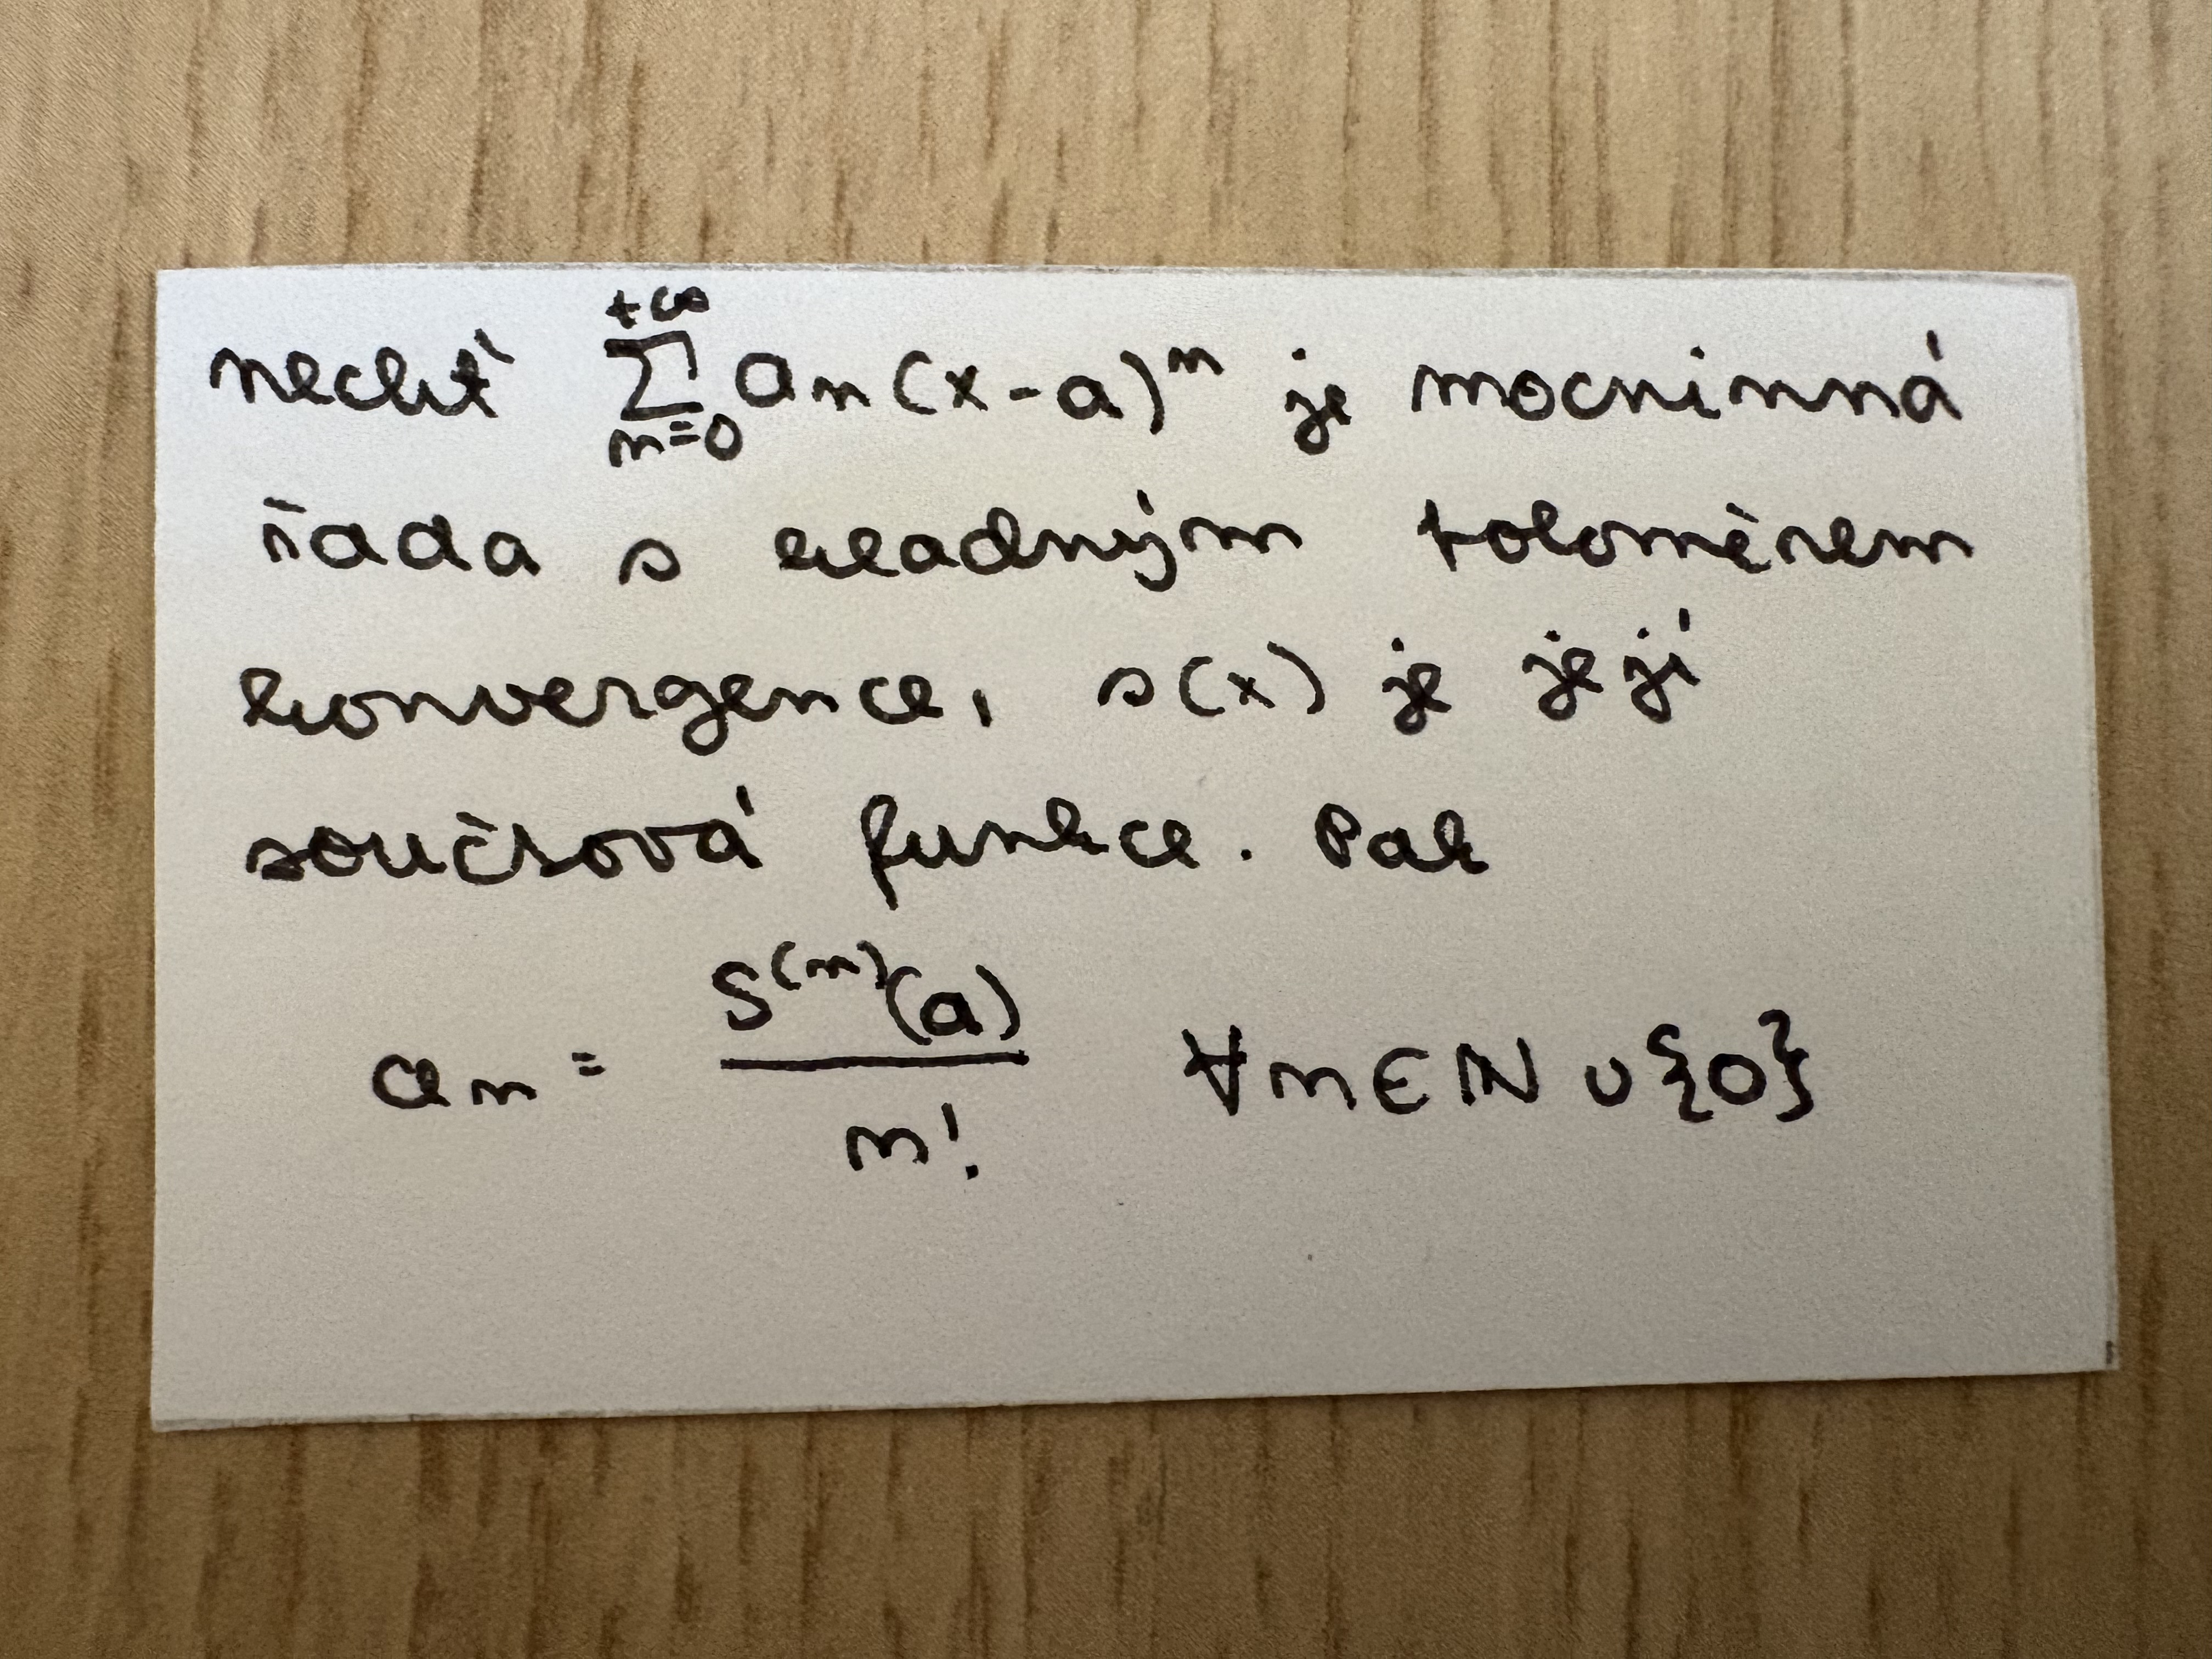 nechť $\sum_{n=0}^{+\infty} a_n (x-a)^n$ je mocninná
řada s kladným poloměrem
konvergence, s(x) je její
součtová funkce. Pak
$a_n = \frac{S^{(n)}(a)}{n!} \quad \forall n \in \mathbb{N} \cup \{0\}$